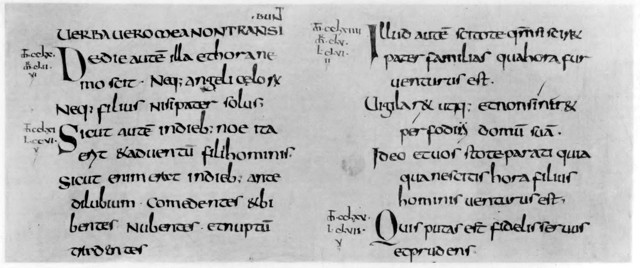 bunt
uerba uero mea non transi
De die autē illa et hora ne
mo scit · Neq; angeli celoꝝ
Neq; filius nisi pater solus;
Sicut autē in dieb; noe ita
erit & aduentū filii hominis·
Sicut enim erat in dieb; ante
diluuium · Comedentes & bi
bentes Nubentes · et nuptū
tradentes
Illud autē scitote qm̄ si scir&
pater familias qua hora fur
uenturus est ·
Uigilar& utiq; et non siner&
perfodiri domū suā ·
Ideo et uos estote parati quia
qua nescitis hora filius
hominis uenturus est;
Quis putas est fidelis seruos
et prudens